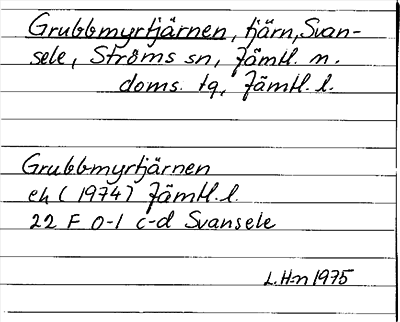 Grubbmyrtjärnen, tjärn, Svan-
sele, Ströms sn, Jämtl. n.
doms. tg, Jämtl. l.
Grubbmyrtjärnen
ek (1974) Jämtl. l.
22 F 0-1 c-d Svansele
L.H-n 1975